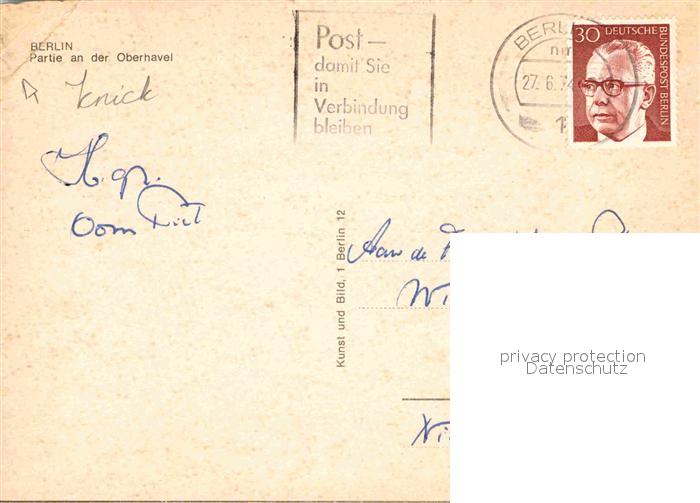 BERLIN
Partie an der Oberhavel
Knick
Post –
damit Sie
in
Verbindung
bleiben
BERLIN
27.6.74
30 DEUTSCHE
BUNDESPOST BERLIN
H. gr.
Oom
Kunst und Bild, 1 Berlin 12
Aan de
privacy protection
Datenschutz